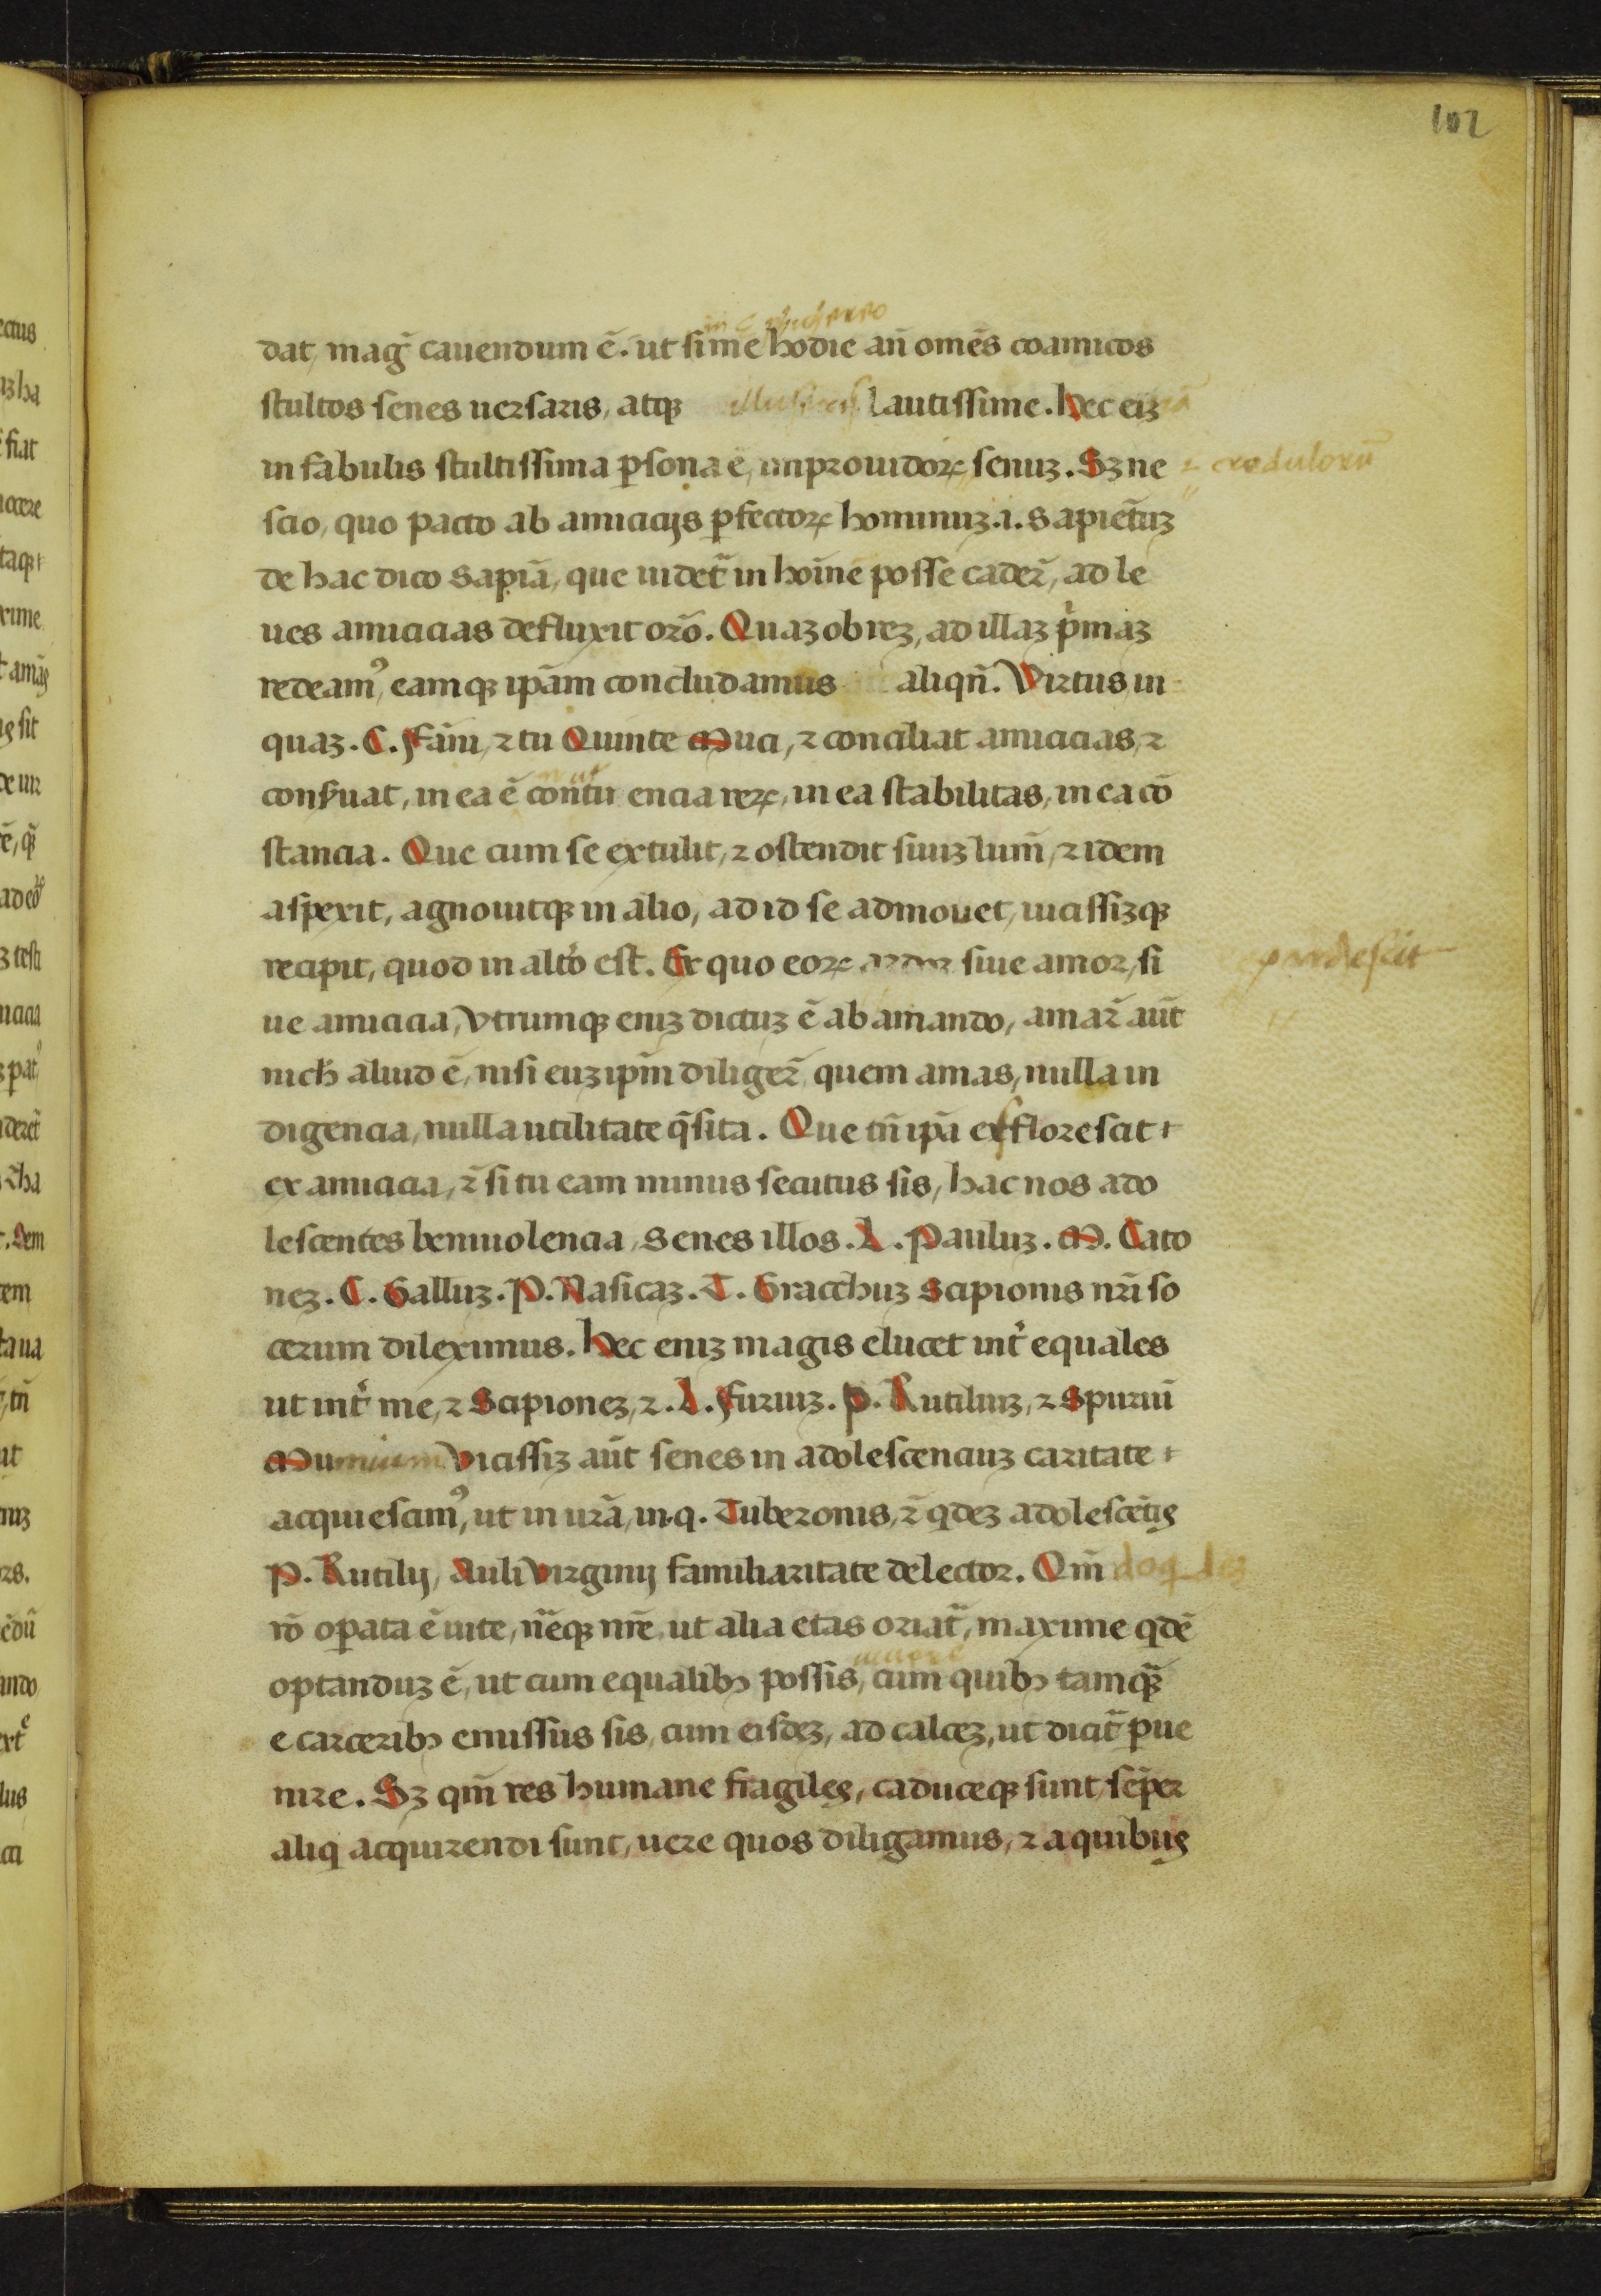 102
dat, mag̃ cauendum ē. ut si me hodie an̄ om̄es coamicos
stultos senes uersaris, atqꝫ illuseris lautissime. Hec eiꝫ
in fabulis stultissima ꝑsona ē, improuidoꝝ senuꝫ. Sꝫ ne
⁊ credulorū
scio, quo pacto ab amicicijs ꝑfectoꝝ hominuꝫ .i. sapiētuꝫ
de hac dico sapiā, que uidet᷑ in hoīne posse cader̄, ad le
ues amicicias defluxit or̄o. Quaꝫobreꝫ, ad illaꝫ pͥmaꝫ
redeamꝰ, eamqꝫ ipām concludamus aliqn̄. Virtus in
quaꝫ .C. Fāni, ⁊ tu Quinte Muci, ⁊ conciliat amicicias, ⁊
conẜuat, in ea ē conueniencia reꝝ, in ea stabilitas, in ea cō
stancia. Que cum se extulit, ⁊ ostendit suuꝫ lum̄, ⁊ idem
aspexit, agnouitqꝫ in alio, ad id se admouet, uicissiꝫqꝫ
recipit, quod in alt̾o est. Ex quo eoꝝ ardor siue amor, si
ue amicicia, vtrumqꝫ eniꝫ dictuꝫ ē ab amando, amar̄ aūt
nich̄ aliud ē, nisi euꝫ ipm̄ diliger̄ quem amas, nulla in
digencia, nulla utilitate q̄sita. Que tn̄ ipā efflorescit
ex amicicia, ⁊̄ si tu eam minus secutus sis, hac nos ado
lescentes beniuolencia, senes illos .L. Pauluꝫ. M. Cato
neꝫ. C. Galluꝫ. P. Nasicaꝫ. T. Gracchuꝫ Scipionis nr̄i so
cerum dileximus. Hec eniꝫ magis elucet int̾ equales
ut int̾ me, ⁊ Scipioneꝫ, ⁊ .L. Furiuꝫ. P. Rutiliuꝫ, ⁊ Spuriū
Mumium Vicissiꝫ aūt senes in adolescenciuꝫ caritate
acquiescimꝰ, ut in ur̄a, in .q. Tuberonis, ⁊̄ qdeꝫ adolescētis
P. Rutilij, Auli Virginij familiaritate delector. Qm̄
rō oꝑata ē uite, n̄eqꝫ nr̄e, ut alia etas oriat᷑, maxime qdē
optanduꝫ ē, ut cum equalibꝫ possis, cum quibꝫ tamqꝫ̄
e carceribꝫ emissus sis, cum eisdeꝫ, ad calceꝫ, ut dicit᷑ ꝑue
nire. Sꝫ qm̄ res humane fragiles, caduceqꝫ sunt, sēper
aliq acquirendi sunt, uere quos diligamus, ⁊ a quibus